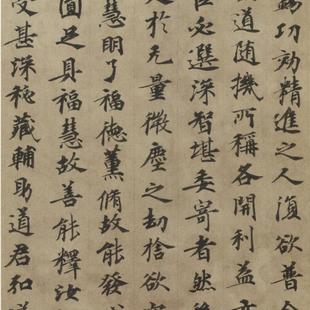 錫功効精進之人復欲普令
道随機所稱各開利益
臣必選深智堪委寄者然後
於无量微塵之劫捨欲
慧明了福德薰脩故能發
圓足具福慧故善能釋汝
受甚深秘藏輔助道君和